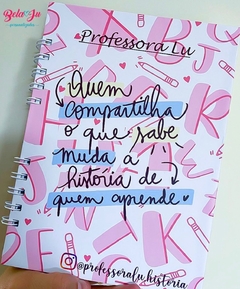 Bela Ju
Professora Lu
Quem
compartilha
o que sabe
muda a
história de
quem aprende
@professoralu.historia